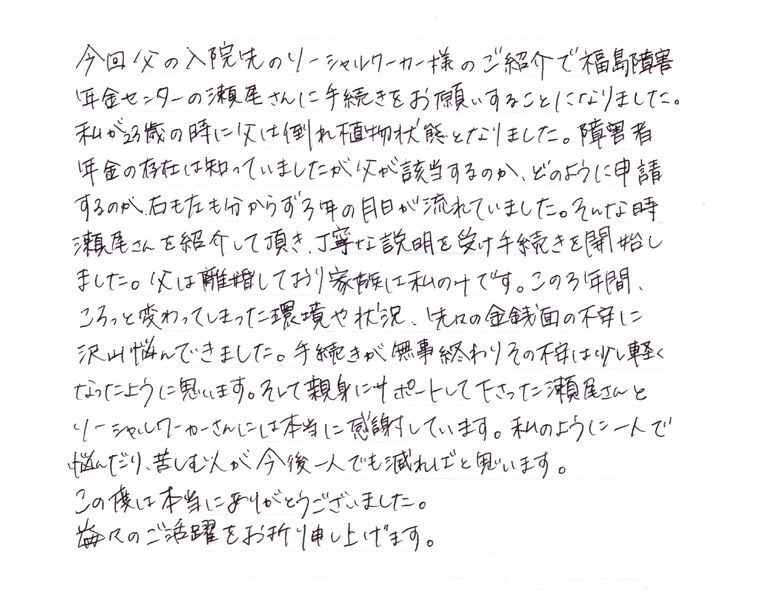 今回父の入院先のソーシャルワーカー様のご紹介で福島障害
年金センターの瀬尾さんに手続きをお願いすることになりました。
私が23歳の時に父は倒れ植物状態となりました。障害者
年金の存在は知っていましたが父が該当するのか、どのように申請
するのか、右も左も分からず3年の月日が流れていました。そんな時
瀬尾さんを紹介して頂き、丁寧な説明を受け手続きを開始し
ました。父は離婚しており家族は私のみです。この3年間、
ころっと変わってしまった環境や状況、先々の金銭面の不安に
沢山悩んできました。手続きが無事終わりその不安は少し軽く
なったように思います。そして親身にサポートして下さった瀬尾さんと
ソーシャルワーカーさんには本当に感謝しています。私のように一人で
悩んだり、苦しむ人が今後一人でも減ればと思います。
この度は本当にありがとうございました。
益々のご活躍をお祈り申し上げます。